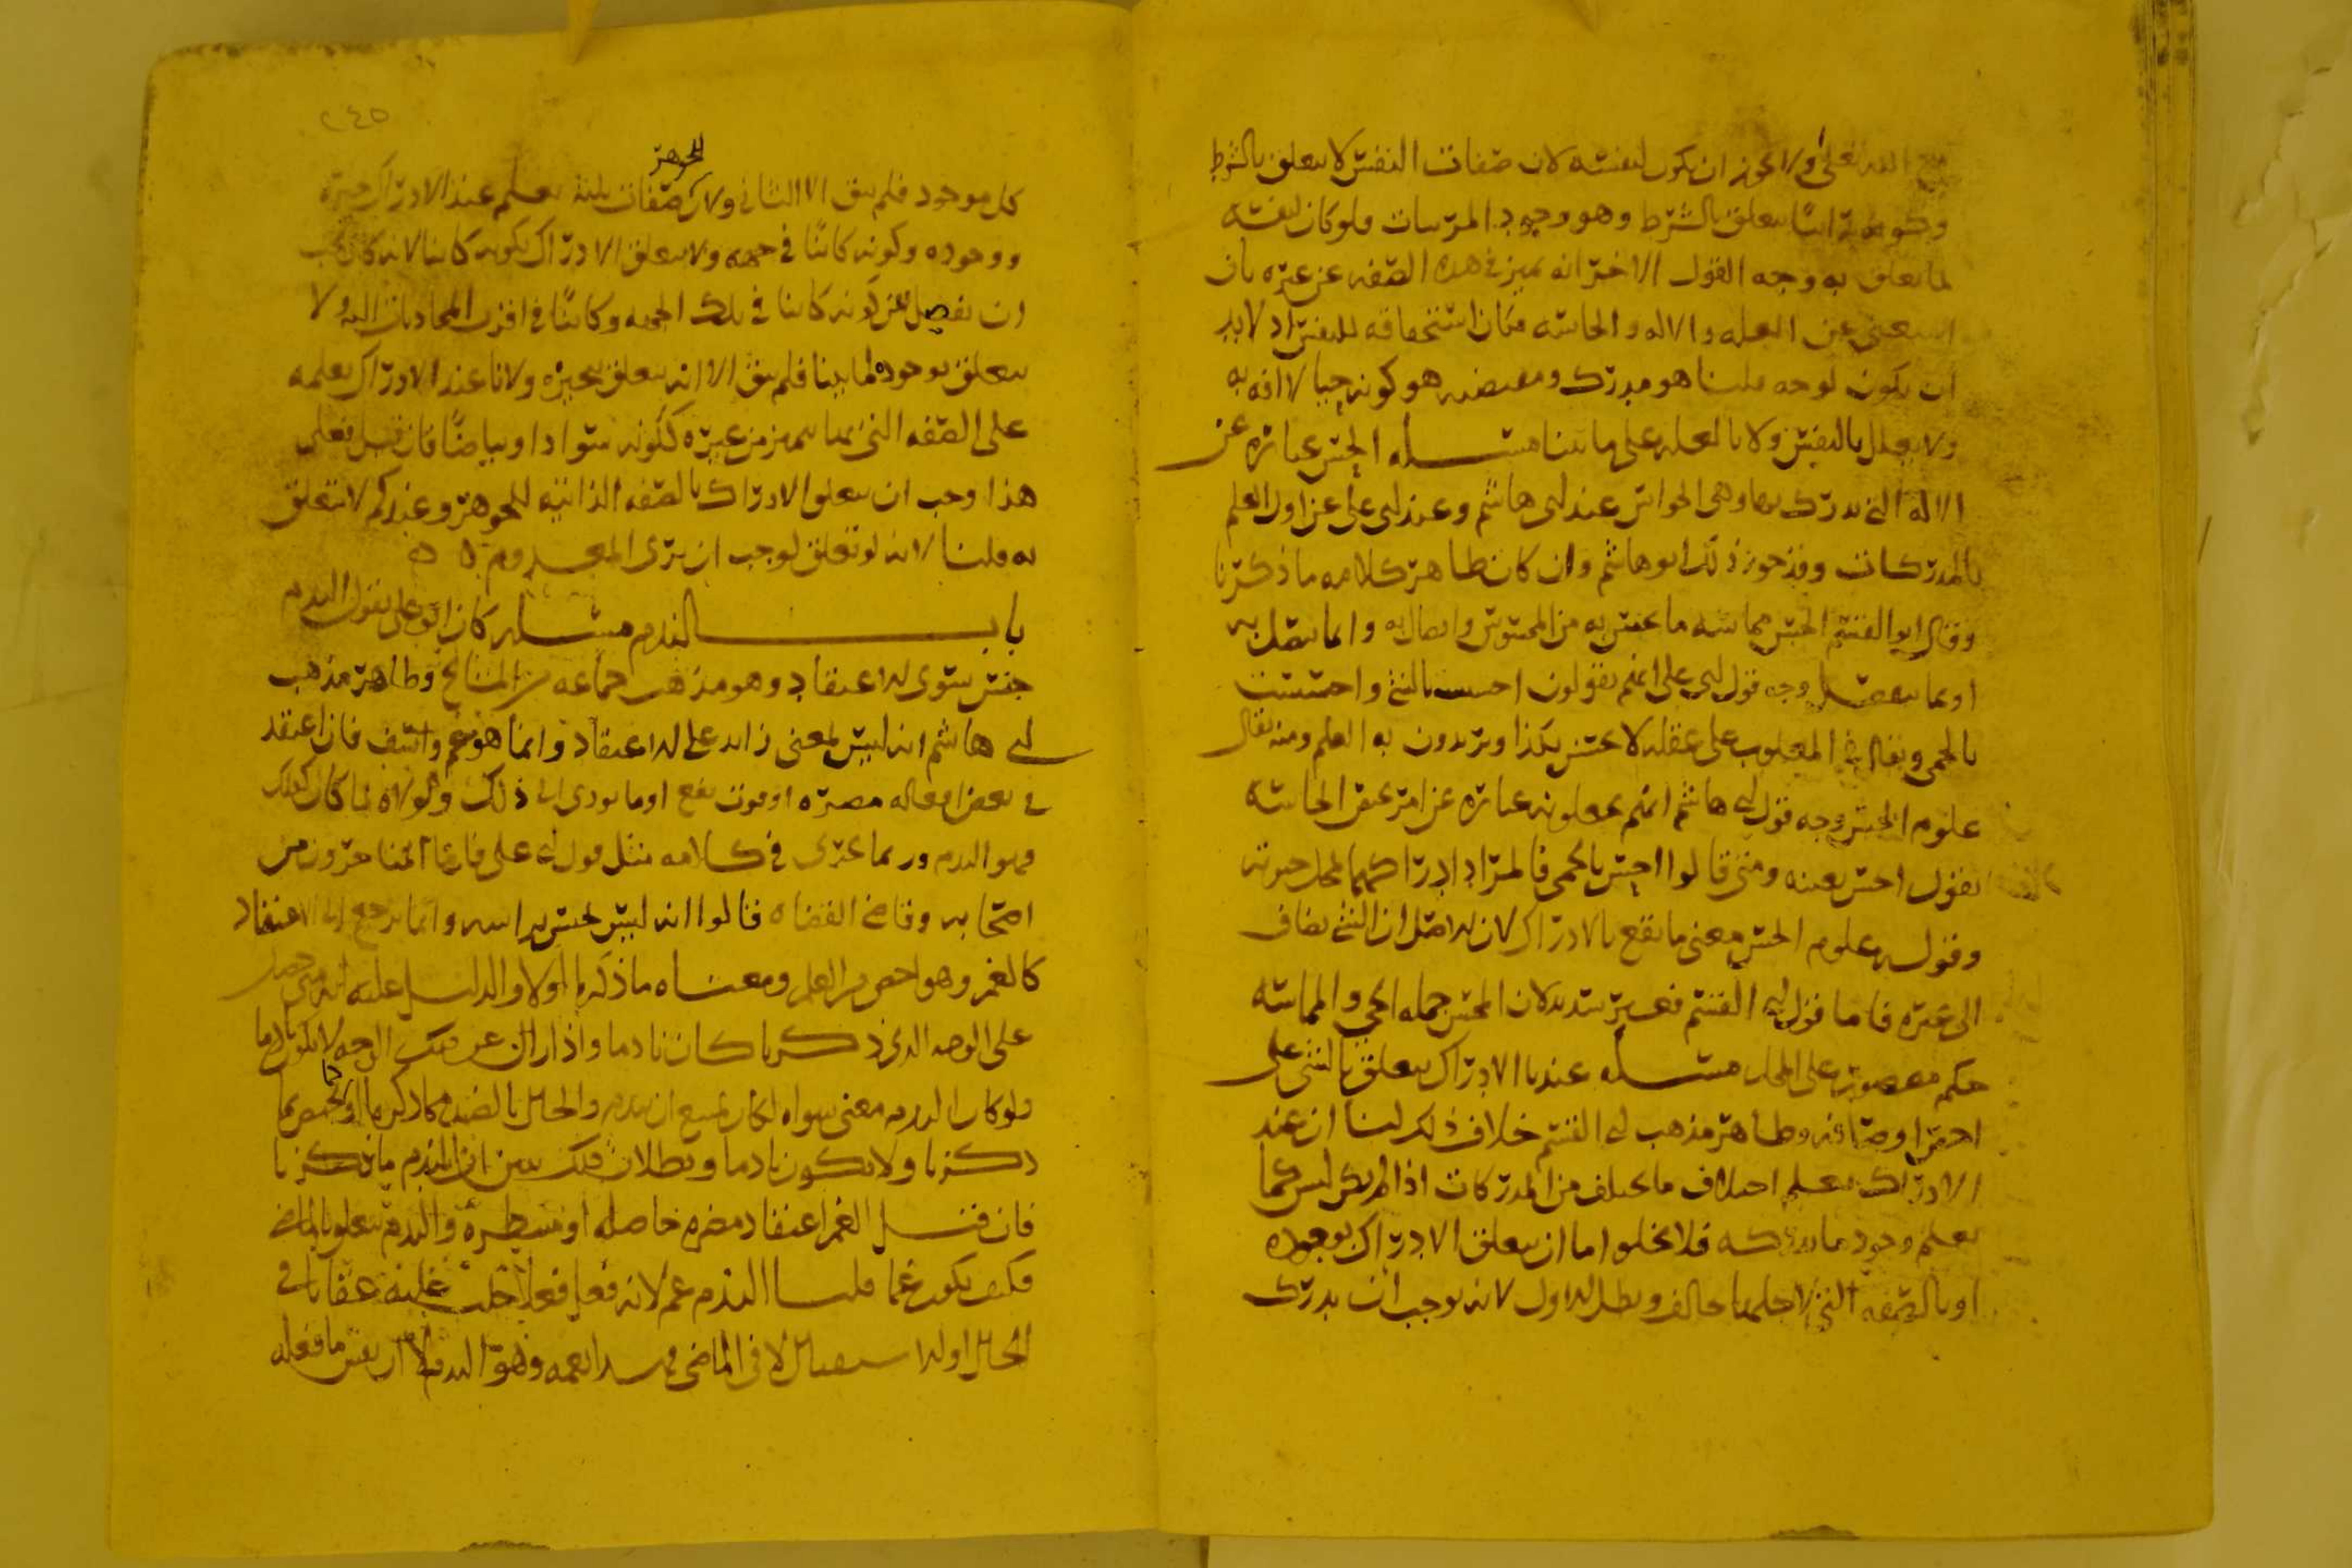 الله تعالى ولا يجوز ان يكون لنفسه لان صفات النفس لا يتعلق بالشرط
وكونه رائيا يتعلق بالشرط وهو وجود المرئيات ولو كان لنفسه
لما تعلق به وجه القول الاخر انه تميز في هذه الصفه عن غيره بان
استغنى عن العله والاله والحاسه فكان استحقاقه للنفس اذ لابد
ان يكون لوجه قلنا هو مدرك ومقتضيه هو كونه حيا لا افه به
ولا يعلل بالنفس ولا بالعله على ما بينا مسله الحس عباره عن
الاله التي يدرك بها وهي الحواس عند ابي هاشم وعند ابي علي عن اول العلم
بالمدركات وقد جوز ذلك ابو هاشم وان كان ظاهر كلامه ما ذكرنا
وقال ابو القسم الحس مماسه ما يحس به من المحسوس واتصال به او ما يتصل به
او بما يتصل وجه قول ابي علي انهم يقولون احسست بالشي واحسست
بالحمى ويقال في المغلوب على عقله لا يحس بكذا ويريدون به العلم ومنه يقال
علوم الحس وجه قول ابي هاشم انهم يجعلونه عباره عن امر يخص الحاسه
يقول احس بعينه ومتى قالوا احس بالحمى فالمراد ادراكها بمحل حيوته
وقوله علوم الحس معنى ما يقع بالادراك لان الاصل ان الشي يضاف
الى غيره فاما قول ابي القسم فغير سديد لان الحس جمله الحي والمماسه
حكم مقصور على المحل مسله عندنا الادراك يتعلق بالشي على
اخص اوصافه وظاهر مذهب ابي القسم خلاف ذلك لنا ان عند
الادراك نعلم اختلاف ما يختلف من المدركات اذا لم يكن لبس كما
نعلم وجود ما ندركه فلا يخلوا اما ان يتعلق الادراك بوجوده
او بالصفه التي لاجلها خالف وبطل الاول لانه يوجب ان يدرك
٢٤٥
الجوهر
كل موجود فلم يبق الا الثاني ولان صفات ثلثه يعلم عند الادراك تحيزه
ووجوده وكونه كائنا في جهه ولا يتعلق الادراك بكونه كائنا لانه كان يجب
ان نفصل بين كونه كائنا في تلك الجهه وكائنا في اقرب المحاذيات اليه ولا
يتعلق بوجوده لما بينا فلم يبق الا انه يتعلق بتحيزه ولانا عند الادراك نعلمه
على الصفه التي بها يتميز من غيره ككونه سوادا وبياضا فان قيل فعلى
هذا وجب ان يتعلق الادراك بالصفه الذاتيه للجوهر وعندكم لا تتعلق
به قلنا لانه لو تعلق لوجب ان يرى المعدوم ه ه
باب الندم مسله كان ابو علي يقول الندم
جنس سوى الاعتقاد وهو مذهب جماعه من المشايخ وظاهر مذهب
ابي هاشم انه ليس لمعنى زائد على الاعتقاد وانما هو غم واسف فان اعتقد
في بعض افعاله مضره او فوت نفع او ما يودي الى ذلك ولولاه لما كان كذلك
فهو الندم وربما يجري في كلامه مثل قول ابي علي فاما المتاخرون من
اصحابه وقاضي القضاه فقالوا انه ليس بجنس براسه وانما يرجع الى الاعتقاد
كالغم وهو اخص من الغم ومعناه ما ذكرنا اولا والدليل عليه انه متى حصل
على الوجه الذي ذكرنا كان نادما واذا زال عن ذلك الوجه لا يكون نادما
ولو كان الندم معنى سواه لكان يمتنع ان
ذكرنا ولا يكون نادما وبطلان ذلك يبين ان الندم ما ذكرنا
فان قيل الغم اعتقاد مضره حاصله او منتظره والندم يتعلق بالماضي
فكيف يكون غما قلنا الندم غم لانه فعل فعلا جلب عليه عقابا في
الحال او الاستقبال لا في الماضي وهو الندم لا ان نفس ما فعله